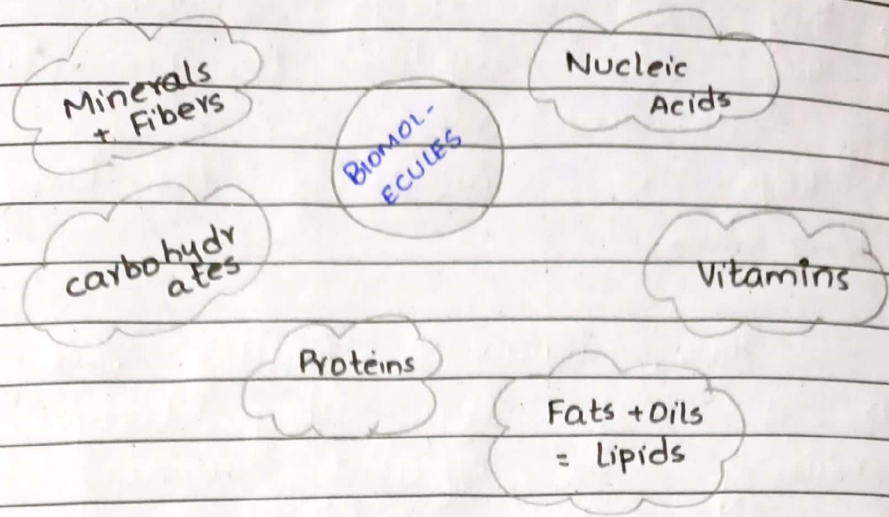 Minerals
+ Fibers
Nucleic
Acids
BIOMOL-
ECULES
carbohydr
ates
Vitamins
Proteins
Fats + Oils
= Lipids